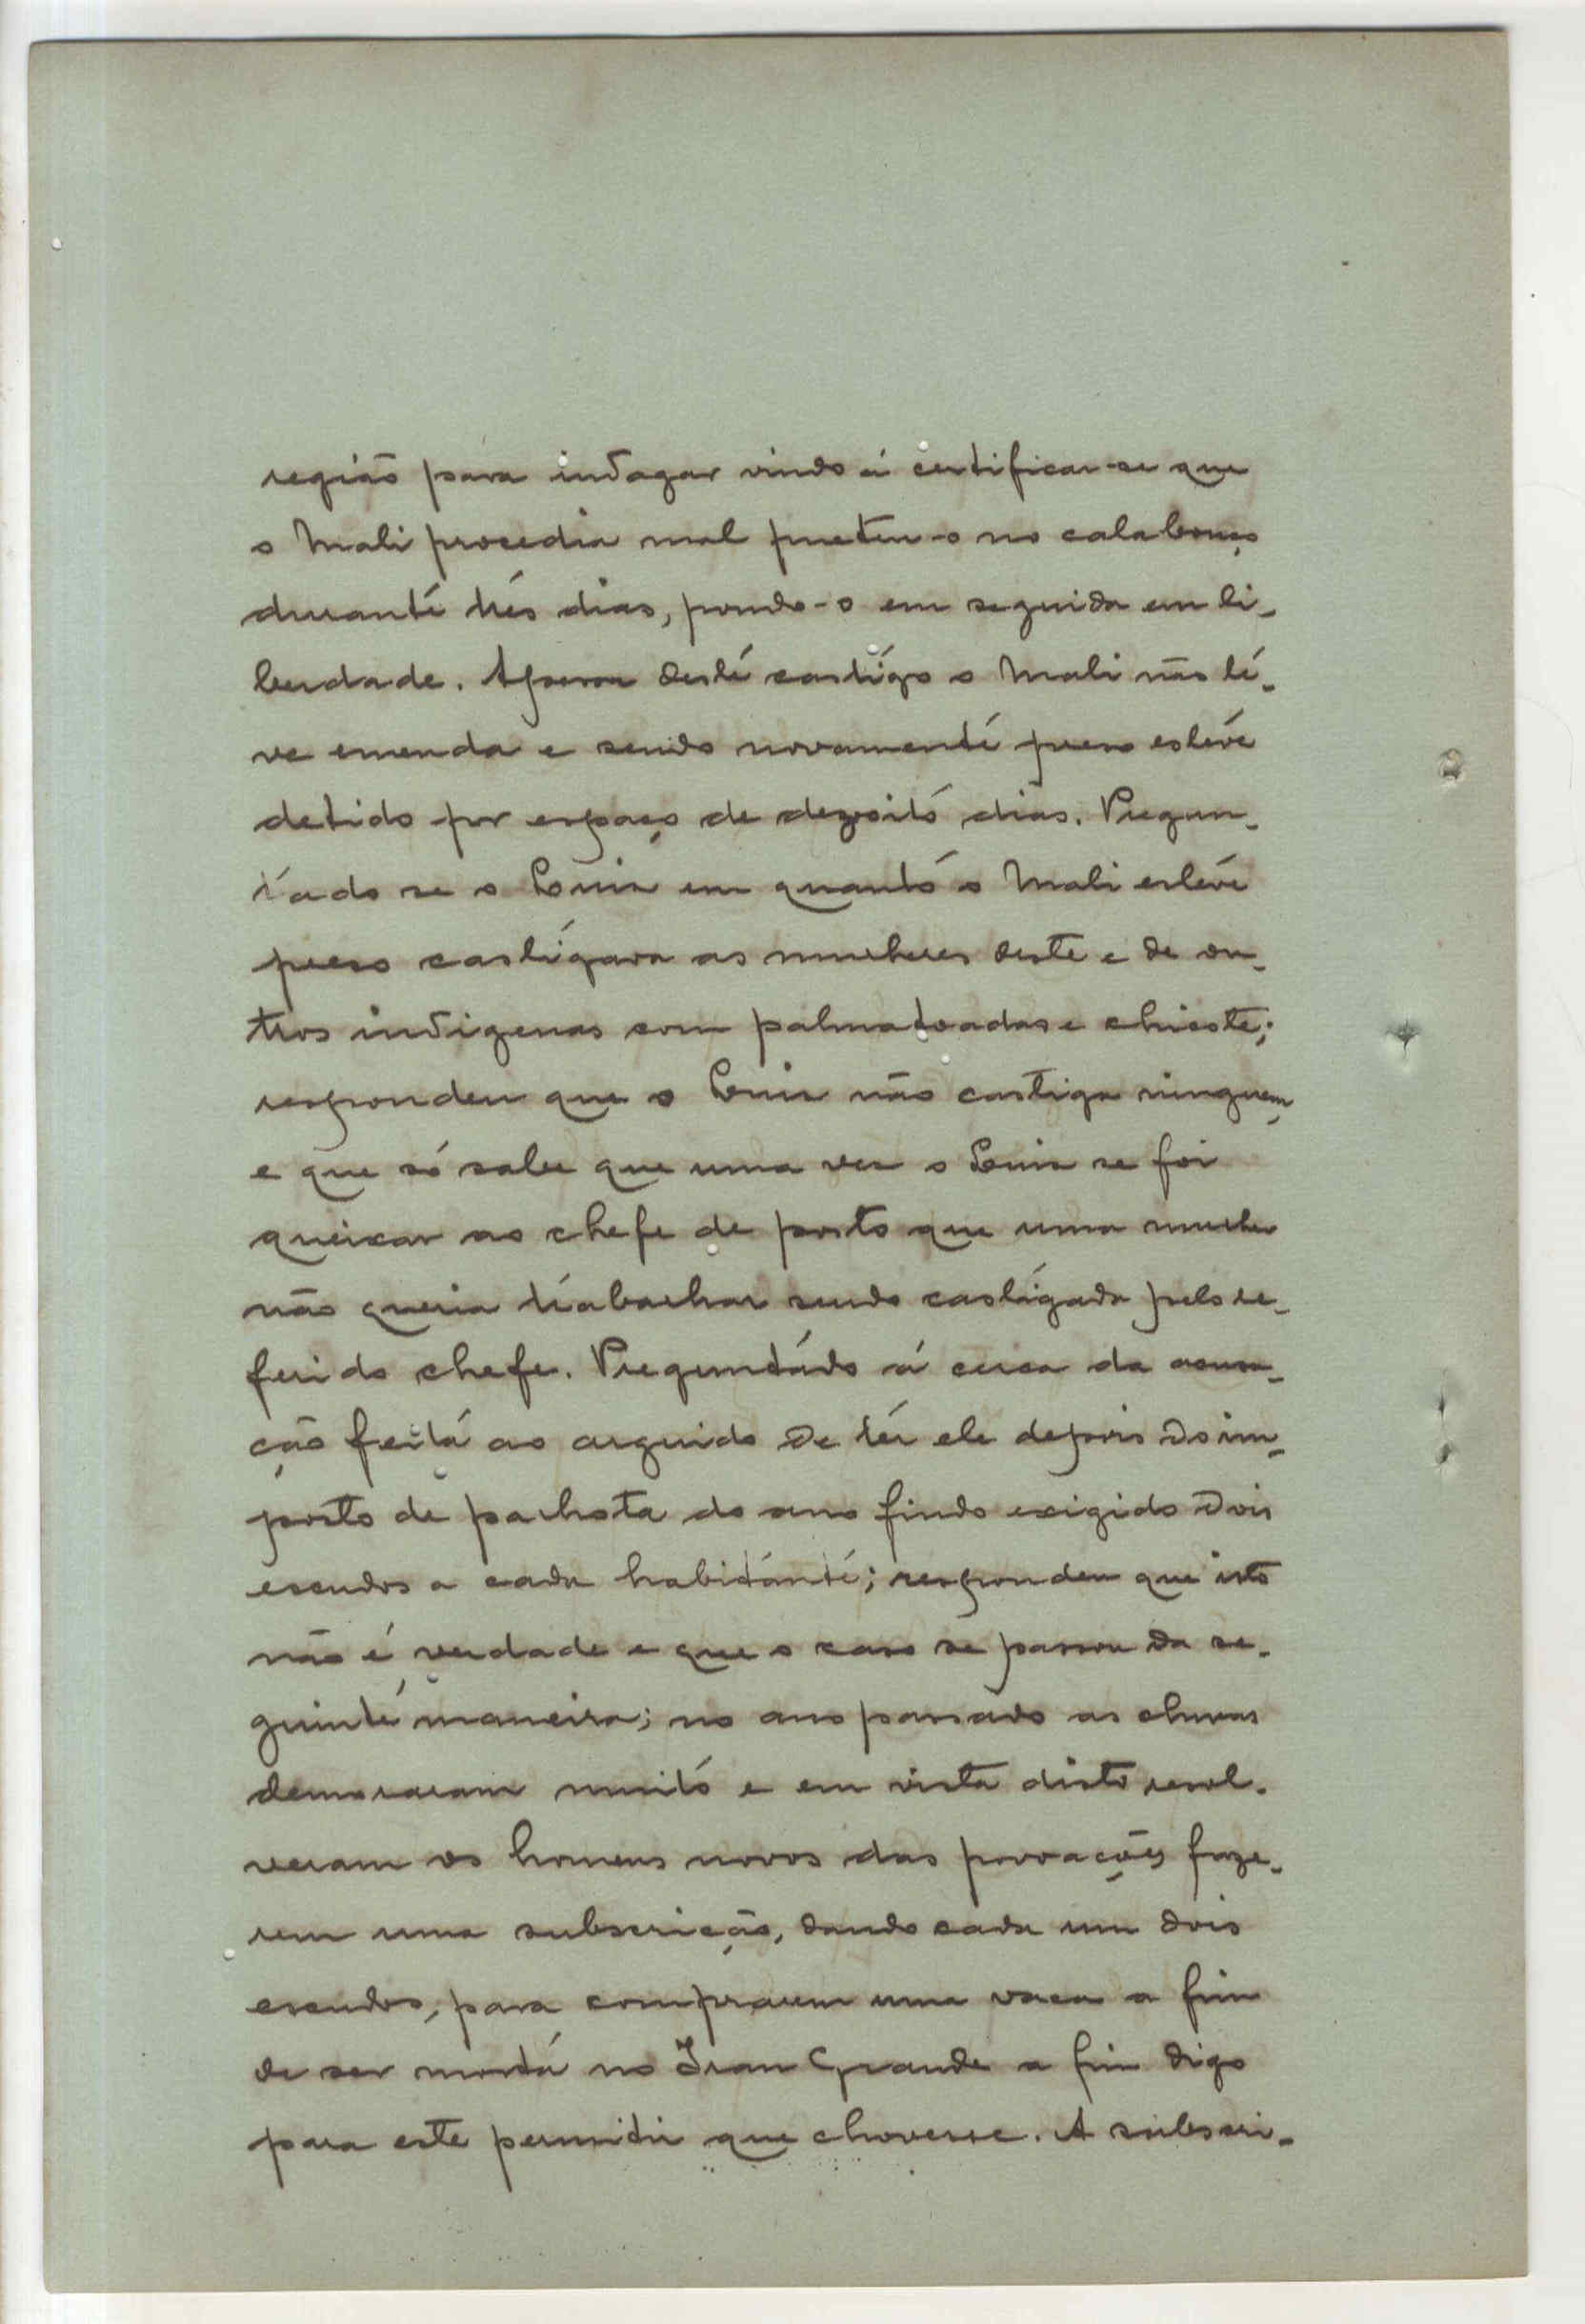 região para indagar vindo á certificar-se que
o Mali procedia mal meteu-o no calabouço
durante três dias, pondo-o em seguida em li-
berdade. Apesar deste castigo o Mali não te-
ve emenda e sendo novamente preso esteve
detido por espaço de dezoito dias. Pregun-
tado se o Luis em quanto o Mali esteve
preso castigara as mulheres deste e de ou-
tros indigenas com palmatoadas e chicote;
respondeu que o Luis não castiga ninguem
e que só sabe que uma vez o Luis se foi
queixar ao chefe de posto que uma mulher
não queria trabalhar sendo castigada pelo re-
ferido chefe. Preguntado á cerca da acusa-
ção feita ao arguido de ter ele depois do im-
posto de palhota do ano findo exigido dois
escudos a cada habitante; respondeu que isto
não é verdade e que o caso se passou da se-
guinte maneira; no ano passado as chuvas
demoraram muito e em vista disto resol-
veram os homens novos das povoações faze-
rem uma subscrição, dando cada um dois
escudos, para comprarem uma vaca a fim
de ser morta no Iran Grande a fim digo
para este permitir que chovesse. A subscri-